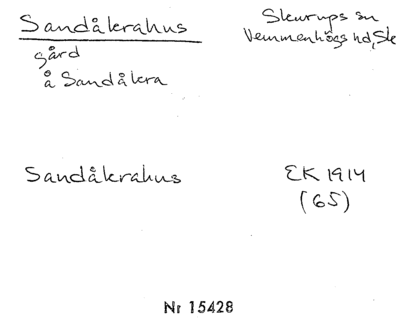 Sandåkrahus
Skurups sn
Vemmenhögs hd, Sk
gård
å Sandåkra
Sandåkrahus
EK 1914
(65)
Nr 15428